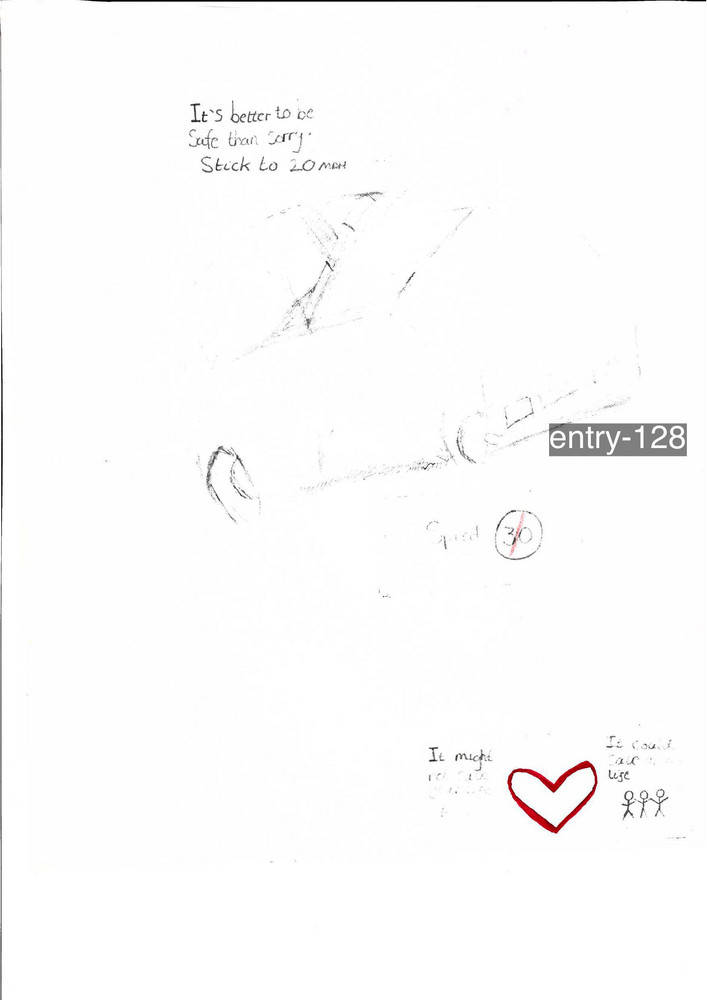 It's better to be
Safe than Sorry.
Stick to 20 MPH
entry-128
Speed 30
It might
It could
save
life